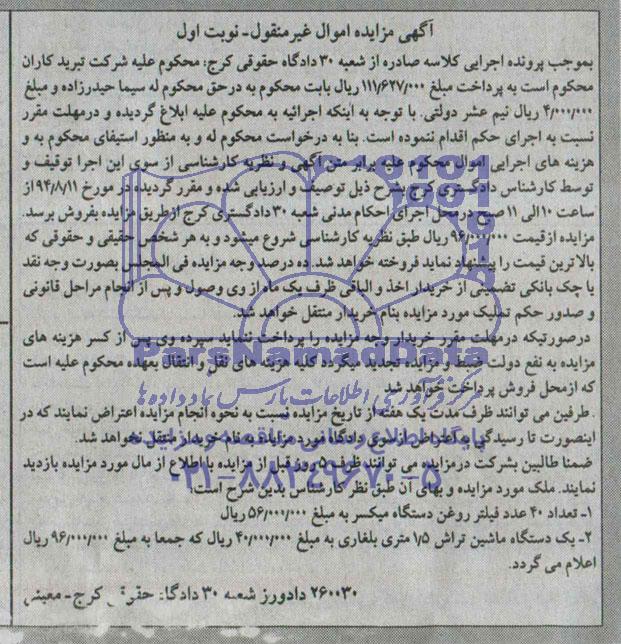 آگهی مزایده اموال غیرمنقول - نوبت اول
بموجب پرونده اجرایی کلاسه صادره از شعبه ۳۰ دادگاه حقوقی کرج: محکوم علیه شرکت تبرید کاران
محکوم است به پرداخت مبلغ ۱۱۱/۶۲۷/۰۰۰ ریال بابت محکوم به درحق محکوم له سیما حیدرزاده و مبلغ
۴/۰۰۰/۰۰۰ ریال نیم عشر دولتی. با توجه به اینکه اجرائیه به محکوم علیه ابلاغ گردیده و درمهلت مقرر
نسبت به اجرای حکم اقدام ننموده است. بنا به درخواست محکوم له و به منظور استیفای محکوم به و
هزینه های اجرایی اموال محکوم علیه برابر متن آگهی و نظریه کارشناسی از سوی این اجرا توقیف و
توسط کارشناس دادگستری کرج بشرح ذیل توصیف و ارزیابی شده و مقرر گردیده در مورخ ۹۴/۸/۱۱ از
ساعت ۱۰ الی ۱۱ صبح درمحل اجرای احکام مدنی شعبه ۳۰ دادگستری کرج ازطریق مزایده بفروش برسد.
مزایده ازقیمت ۹۶/۰۰۰/۰۰۰ ریال طبق نظریه کارشناسی شروع میشود و به هر شخص حقیقی و حقوقی که
بالاترین قیمت را پیشنهاد نماید فروخته خواهد شد. ده درصد وجه مزایده فی المجلس بصورت وجه نقد
یا چک بانکی تضمینی از خریدار اخذ و الباقی ظرف یک ماه از وی وصول و پس از انجام مراحل قانونی
و صدور حکم تملیک مورد مزایده بنام خریدار منتقل خواهد شد.
درصورتیکه درمهلت مقرر خریدار وجه مزایده را پرداخت ننماید سپرده وی پس از کسر هزینه های
مزایده به نفع دولت ضبط و مزایده تجدید میگردد کلیه هزینه های نقل و انتقال بعهده محکوم علیه است
که ازمحل فروش پرداخت خواهد شد
. طرفین می توانند ظرف مدت یک هفته از تاریخ مزایده نسبت به نحوه انجام مزایده اعتراض نمایند که در
اینصورت تا رسیدگی به اعتراض ازسوی دادگاه مورد مزایده به نام خریدار منتقل نخواهد شد.
ضمنا طالبین بشرکت درمزایده می توانند ظرف ۵ روز قبل از مزایده با اطلاع از مال مورد مزایده بازدید
نمایند. ملک مورد مزایده و بهای آن طبق نظر کارشناس بدین شرح است:
۱- تعداد ۴۰ عدد فیلتر روغن دستگاه میکسر به مبلغ ۵۶/۰۰۰/۰۰۰ ریال
۲- یک دستگاه ماشین تراش ۱/۵ متری بلغاری به مبلغ ۴۰/۰۰۰/۰۰۰ ریال که جمعا به مبلغ ۹۶/۰۰۰/۰۰۰ ریال
اعلام می گردد.
۲۶۰۰۳۰ دادورز شعبه ۳۰ دادگاه حقوقی کرج - معینی
ParsNamadData
مرکز فرآوری اطلاعات پارس نماد داده ها
پایگاه اطلاع رسانی مناقصه و مزایده
۰۲۱-۸۸۳۴۹۶۷۰-۵